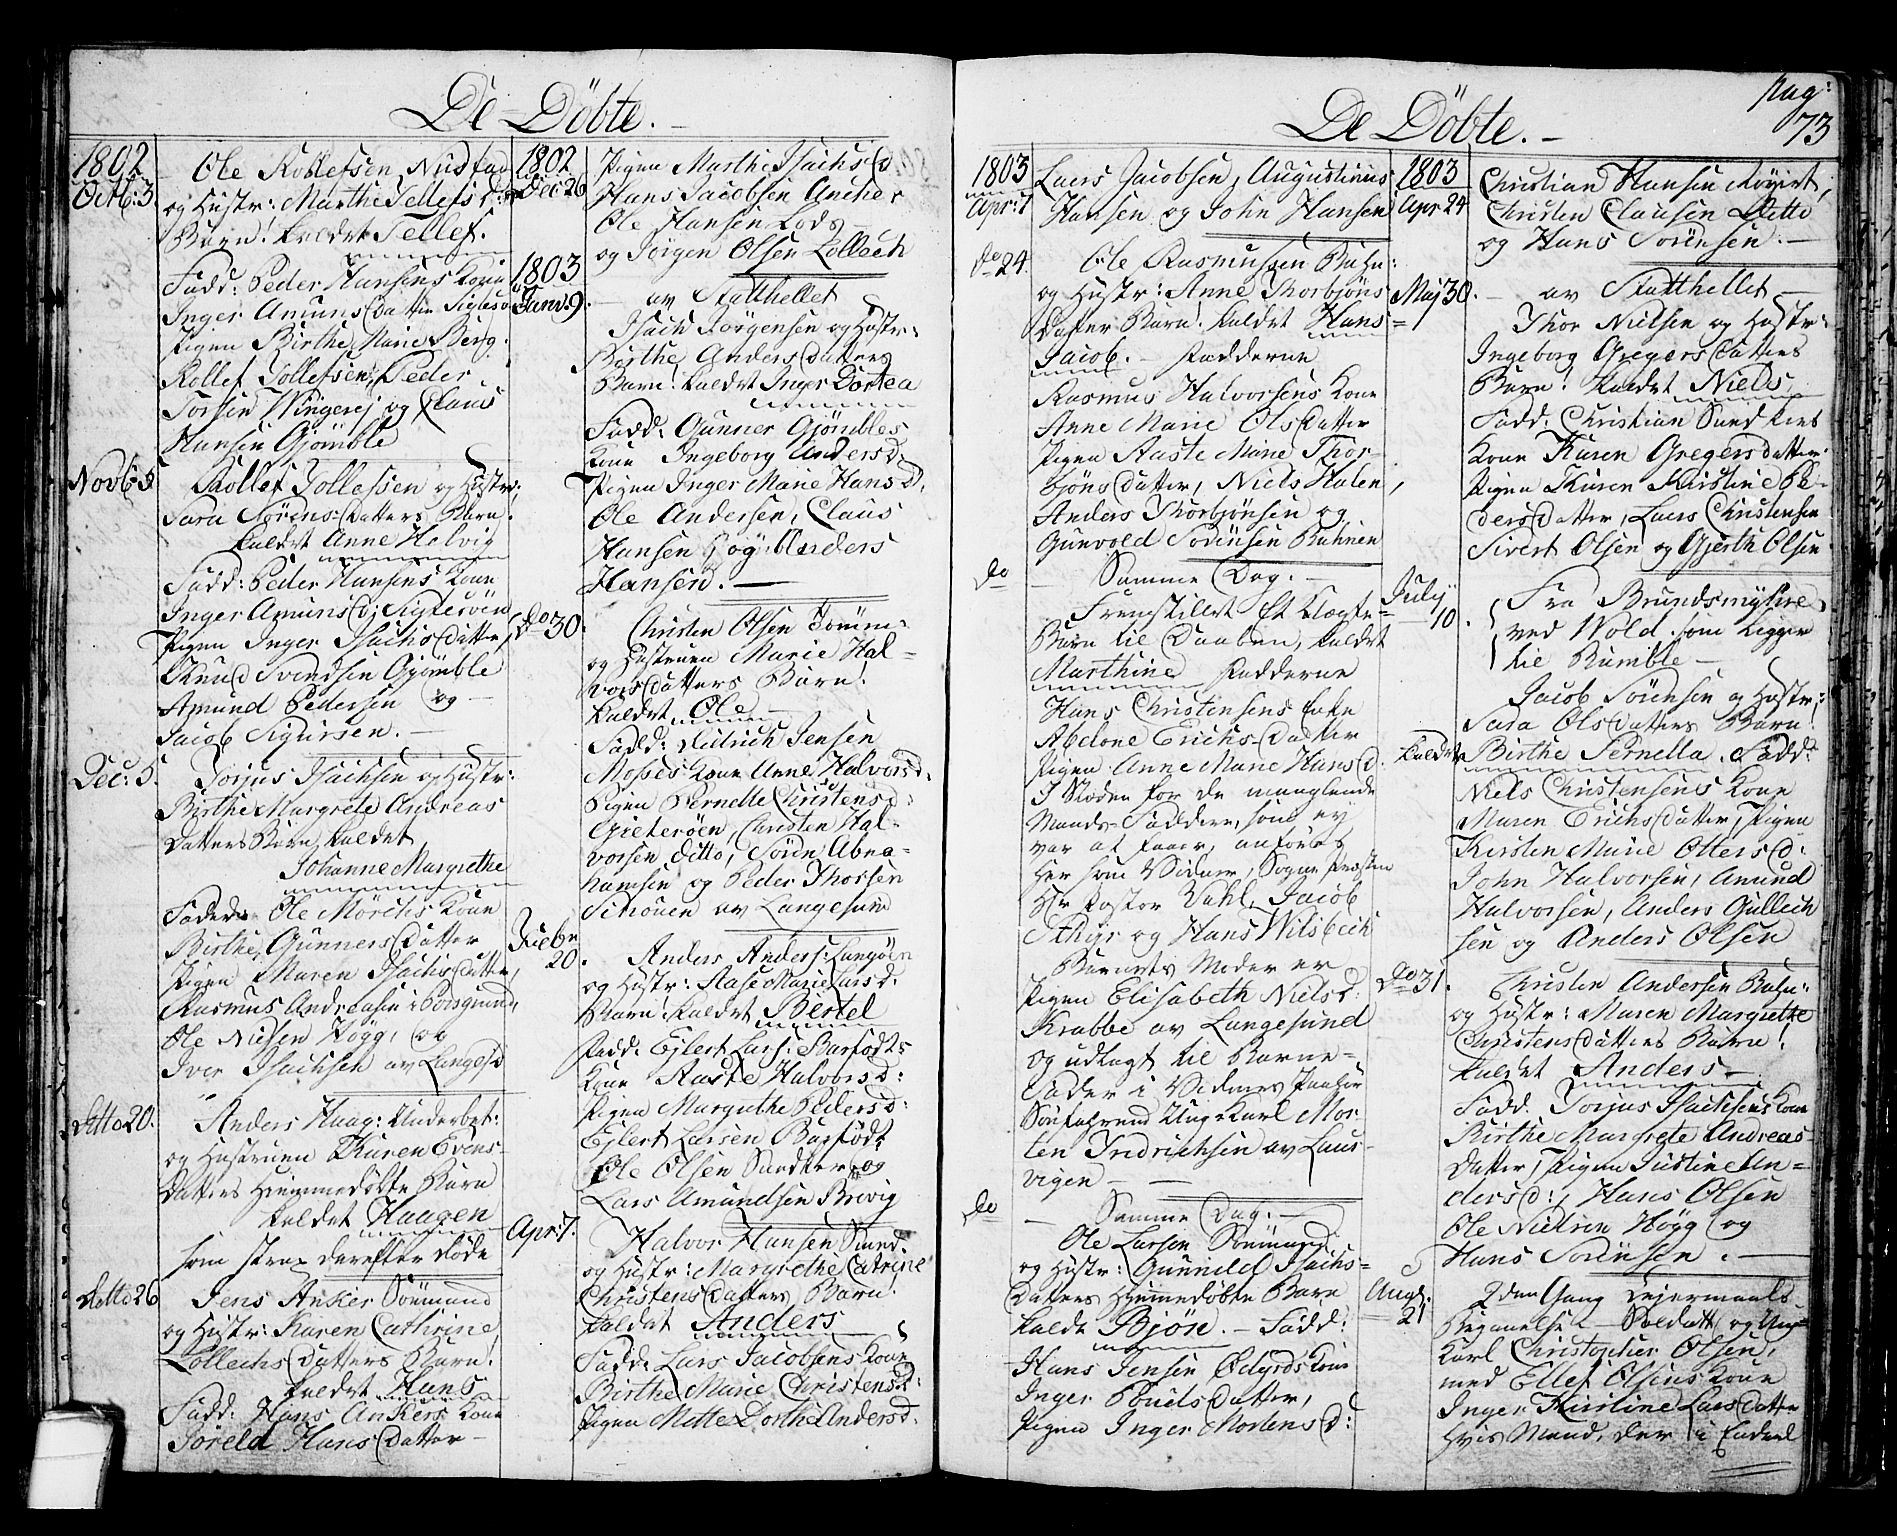 De Döbte.
1802
Octb: 3.
Ole Rollefsen Nustad
og Hustr: Marthe Tellefs D:
Barn! kaldet Tellef.
Fadd: Peder Hansens Kone
Inger Amunds Datter
Pigen Birthe Marie Berg.
Rollef Tollefsen, Peder
Torsen Wingerej og Claus
Hansen Gjömble
Novb: 5
Rollef Tollefsen og Hustr:
Sara Sörens Datters Barn.
kaldet Anne Helvig
Fadd: Peder Hansens Kone
Inger Amuns D: Sigtesöen
Pigen Inger Isachs Datter,
Knud Svendsen Gjömble
Amund Pedersen og
Jacob Sigursen.
Dec: 5.
Torjus Isachsen og Hustr:
Birthe Margrete Andreas
Datters Barn, kaldet
Johanne Margrethe
Fadd: Ole Mörchs Kone
Birthe Gunners Datter
Pigen Maren Isachs Datter,
Rasmus Andreasen i Porsgrund,
Ole Nielsen Högg, og
Iver Isachsen av Langesd
Ditto 20.
Anders Haag: Underbet:
og Hustruen Karen Evens-
Datters Hiemmedöbte Barn
kaldet Haagen
som strax derefter döde
Ditto 26
Jens Anker Sömand
og Hustr: Karen Cathrine
Lollechs Datters Barn!
kaldet Hans
Fadd: Hans Ankers Kone
Söreld Hans Datter -
1802
Dec 26
Pigen Marthe Isachs D
Hans Jacobsen Ancher
Ole Hansen Lods
og Jörgen Olsen Lollech
1803
Janv: 9.
av Statthellet
Isach Jörgensen og Hustr:
Birthe Anders Datters
Barn! kaldet Inger Dortea
Fadd: Gunner Gjömbles
Kone Ingeborg Andersd:
Pigen Inger Marie Hans D.
Ole Andersen, Claus
Hansen Anders
Hansen.
Do 30.
Christen Olsen Tömm:
og Hustruen Marie Hal-
vors Datters Barn!
kaldet Ole
Fadd: Didrich Jensen
Mosses Kone Anne Halvorsd:
Pigen Pernelle Christensd:
Gieteröen, Christen Hal-
vorsen ditto, Sören Abra-
hamsen og Peder Thorsen
Schouen av Langesund
Febr
20.
Anders Anders: Langöen
og Hustr: Aase Marie Larsd.
Barn! kaldet Bertel
Fadd: Ejlert Lars: Barfödts
Kone Aaste Halvorsd:
Pigen Margrethe Pedersd:
Ejlert Larsen Barfödt
Ole Olsen Sundker og
Lars Amundsen Brevig
Apr: 7.
Halvor Hansen Sund.
og Hustr: Margrethe Catrine
Christens Datters Barn!
kaldet Anders
Fadd: Lars Jacobsens Kone
Birthe Marie Christensd:
Pigen Mette Dorthe Andersd:
De Döbte.
pag:
73
1803
Apr: 7
Laers Jacobsen, Augustinus
Hansen og John Hansen
do 24.
Ole Rasmusen
og Hustr: Anne Thorbjöns
Datter Barn! kaldet Hans
Jacob. - Fadderne
Rasmus Halvorsens Kone
Anne Marie Ols Datter
Pigen Aaste Marie Thor-
bjöns Datter, Niels Halen,
Anders Thorbjönsen og
Gunvold Sörensen
do
Samme Dag.
Fremstillet Et Uægte
Barn til Daaben, kaldet
Marthine Fadderne
Hans Christensens Enke
Abelone Erichs Datter
Pigen Anne Marie Hans d.
I Stæden for de manglende
Mands-Faddere, som ej
var at faae, anföres
her som Vidner, Sogne Presten
Hr Pastor Dahl, Jacob
Styr og Hans Wilsbech
Barnets Moder er
Pigen Elisabeth Niels D.
Krabbe av Langesund
og udlagt til Barne-
Fader i Vidners Paahör
Söefahrend Ung Karl Mor-
ten Indrichsen av Laur-
vigen
do
Samme Dag.
Ole Larsen Sömand
og Hustr: Gunnild Isachs-
Datters Hjemedöbte Barn
kaldt Bjön. - Fadd:
Hans Jensen Ödegrds Kone
Inger Pouels Datter,
Pigen Inger Mortens D:
1803
Apr 24
Christian Hansen
Christen Clausen Ditto
og Hans Sörensen.
Maj 30.
av Statthellet
Thor Nielsen og Hustr:
Ingeborg Gregers Datters
Barn! kaldet Niels
Fadd: Christian Sundkers
Kone Karen Gregersdatter
Pigen Karen Kirstine Pe-
dersdatter, Laers Christensen
Sivert Olsen og Gjerth Olsen
July
10.
Fra Brundsmyhre
ved Wold. som ligger
til Bamble
Jacob Sörensen og Hustr:
Sara Ols Datters Barn!
kaldet Birthe Pernella. Fadd:
Niels Christensens Kone
Maren Erichs Datter, Pigen
Kirsten Marie Otters D:
John Halvorsen, Amund
Halvorsen, Anders Gullech
sen og Anders Olsen
Do 31.
Christen Andersen
og Hustr: Maren Margrethe
Christens Datters Barn!
kaldet Anders
Fadd. Torjus Isachsens Kone
Birthe Margrete Andreas-
Datter, Pigen Justine An-
dersd:, Hans Olsen
Ole Nielsen Högg og
Hans Sörensen.
Augs.
21
2den Gang Lejermaals
Begaaelse - Soldatt og Ung-
karl Christopher Olsen,
med Ellef Olsens Kone
Inger Kirstine Lars Datter
hvis Mand, der i